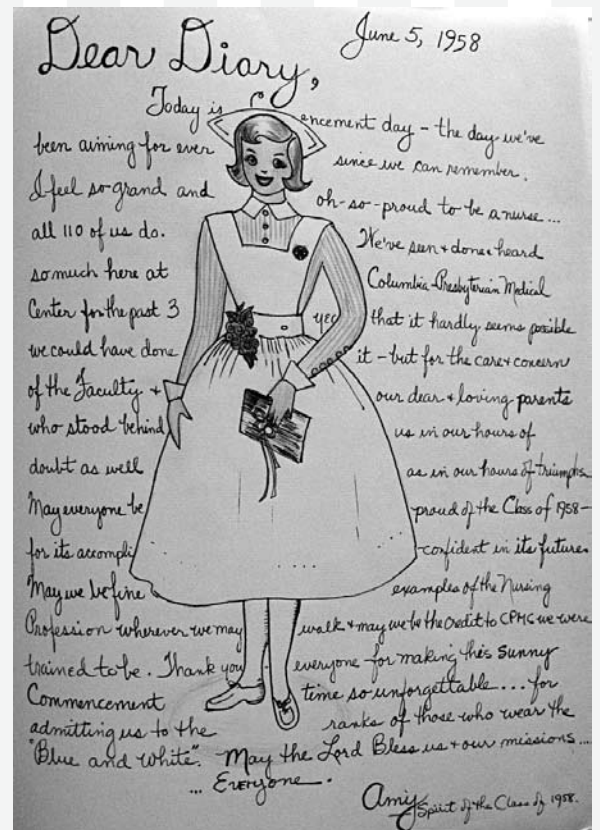 Dear Diary,
June 5, 1958
Today is encement day - the day we've
been aiming for ever since we can remember.
I feel so grand and oh-so-proud to be a nurse...
all 110 of us do. We've seen + done + heard
so much here at Columbia-Presbyterian Medical
Center for the past 3 yea that it hardly seems possible
we could have done it - but for the care + concern
of the Faculty + our dear + loving parents
who stood behind us in our hours of
doubt as well as in our hours of triumphs.
May everyone be proud of the Class of 1958-
for its accompli confident in its future.
May we be fine examples of the Nursing
Profession wherever we may walk + may we be the credit to CPMC we were
trained to be. Thank you everyone for making this sunny
Commencement time so unforgettable... for
admitting us to the ranks of those who wear the
"Blue and White". May the Lord Bless us + our missions...
... Everyone.
Amy Spirit of the Class of 1958.